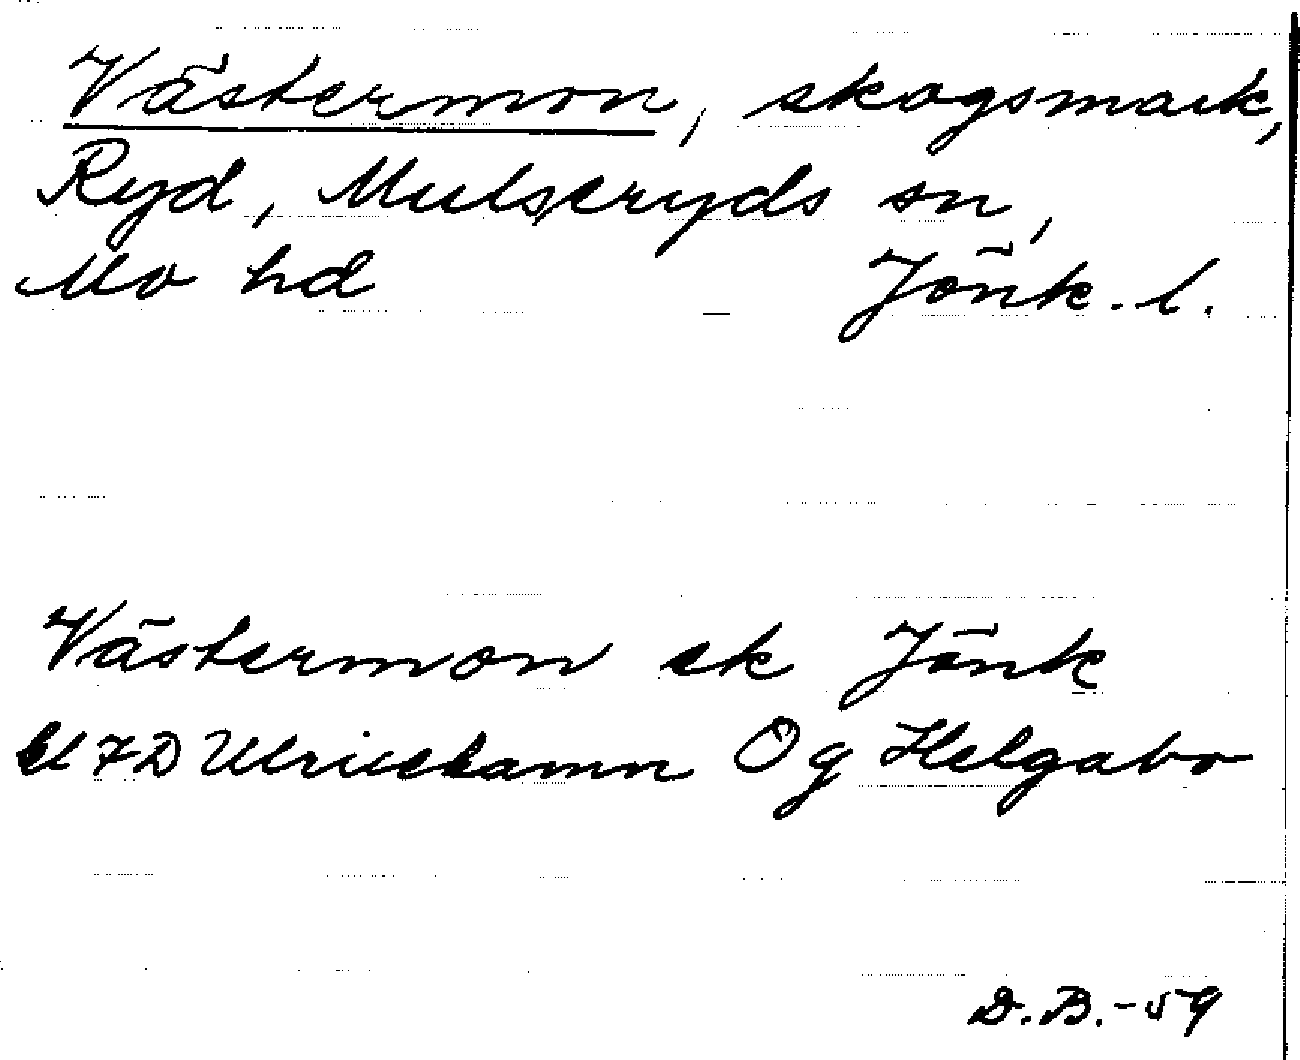 Västermon, skogsmark,
Ryd, Mulseryds sn,
Mo hd Jönk. l.
Västermon ek Jönk
7D Ulricehamn Og Helgabo
D.B.-59